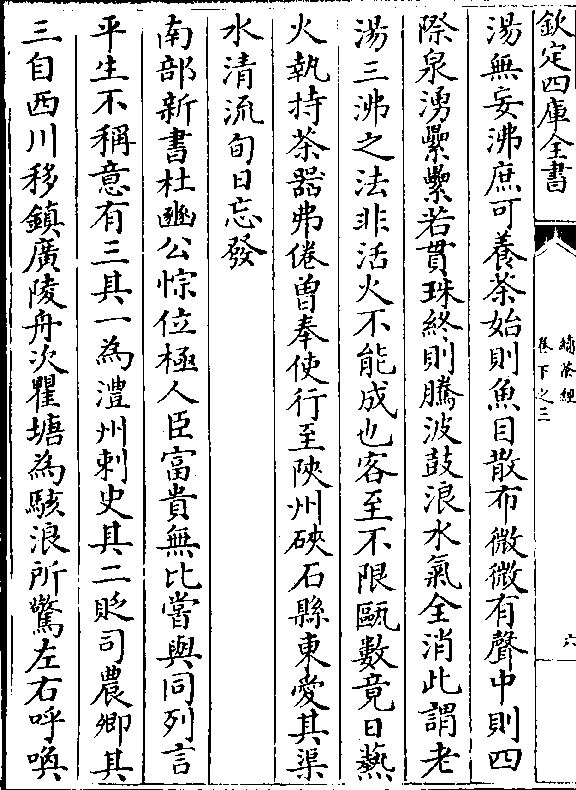 欽定四庫全書
續茶經
卷下之三
六
湯無妄沸庶可養茶始則魚目散布微微有聲中則四
際泉湧纍纍若貫珠終則騰波鼓浪水氣全消此謂老
湯三沸之法非活火不能成也客至不限甌數竟日爇
火執持茶器弗倦曾奉使行至陜州硤石縣東愛其渠
水清流旬日忘發
南部新書杜豳公悰位極人臣富貴無比嘗與同列言
平生不稱意有三其一為澧州刺史其二貶司農卿其
三自西川移鎮廣陵舟次瞿塘為駭浪所驚左右呼喚